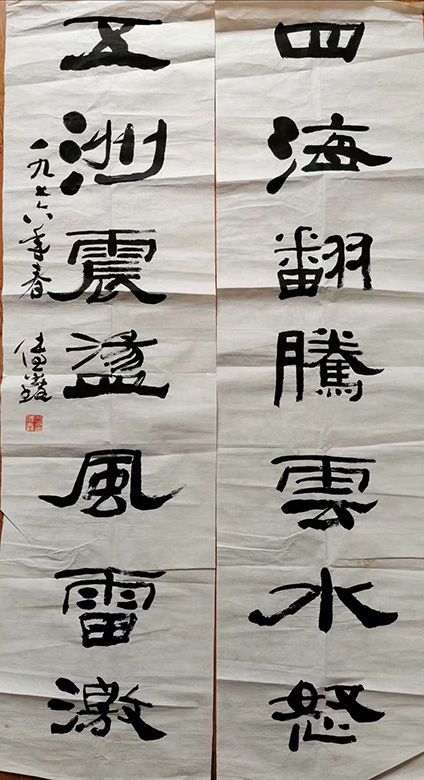 四海翻騰雲水怒
五洲震盪風雷激
一九七六年春